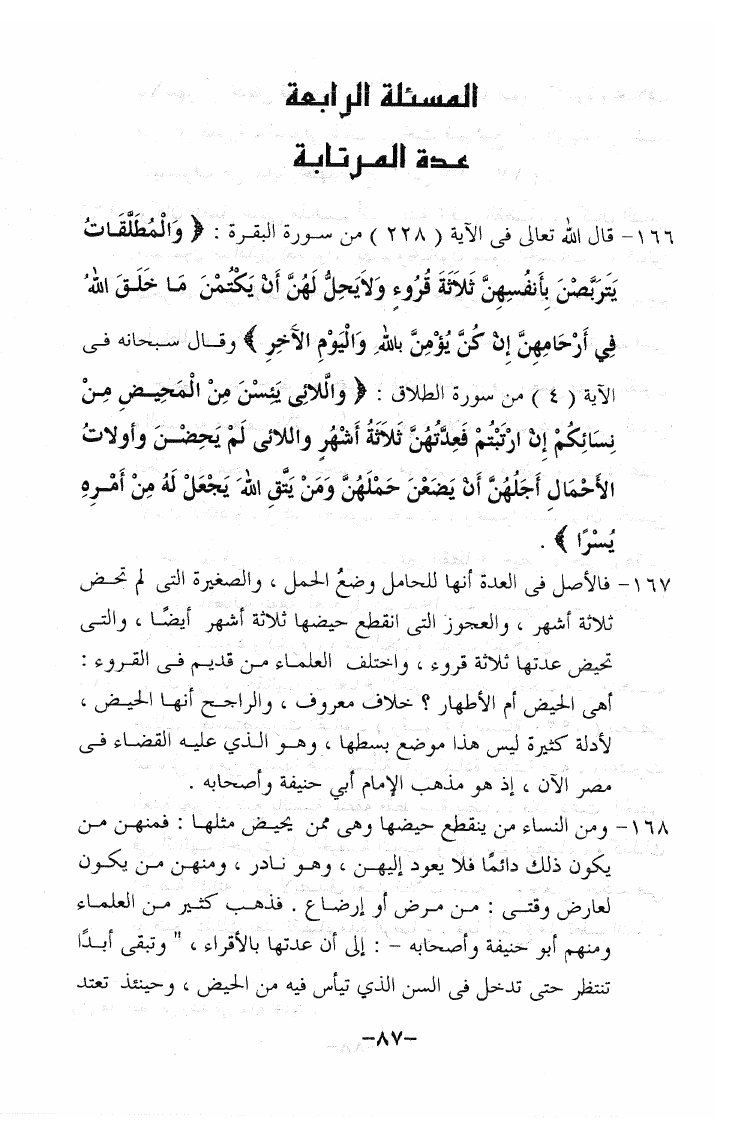 المسئلة الرابعة
عدة المرتابة
١٦٦- قال الله تعالى فى الآية ( ٢٢٨ ) من سورة البقرة : ﴿ وَالْمُطَلَّقَاتُ
يَتَرَبَّصْنَ بِأَنفُسِهِنَّ ثَلاَثَةَ قُرُوءٍ وَلاَيَحِلُّ لَهُنَّ أَنْ يَكْتُمْنَ مَا خَلَقَ اللهُ
فِي أَرْحَامِهِنَّ إِنْ كُنَّ يُؤْمِنَّ بِاللهِ وَالْيَوْمِ الآخِرِ ﴾ وقال سبحانه فى
الآية ( ٤ ) من سورة الطلاق : ﴿ وَاللَّائِى يَئِسْنَ مِنْ الْمَحِيضِ مِنْ
نِسَائِكُمْ إِنْ ارْتَبْتُمْ فَعِدَّتُهُنَّ ثَلاَثَةُ أَشْهُرٍ واللائى لَمْ يَحِضْنَ وأولاتُ
الأَحْمَالِ أَجَلُهُنَّ أَنْ يَضَعْنَ حَمْلَهُنَّ وَمَنْ يَتَّقِ اللهَ يَجْعَلْ لَهُ مِنْ أَمْرِهِ
يُسْرًا ﴾ .
١٦٧- فالأصل فى العدة أنها للحامل وضعُ الحمل ، والصغيرة التى لم تحض
ثلاثة أشهر ، والعجوز التى انقطع حيضها ثلاثة أشهر أيضًا ، والتى
تحيض عدتها ثلاثة قروء ، واختلف العلماء من قديم فى القروء :
أهى الحيض أم الأطهار ؟ خلاف معروف ، والراجح أنها الحيض ،
لأدلة كثيرة ليس هذا موضع بسطها ، وهو الذي عليه القضاء فى
مصر الآن ، إذ هو مذهب الإمام أبي حنيفة وأصحابه .
١٦٨- ومن النساء من ينقطع حيضها وهى ممن يحيض مثلها : فمنهن من
يكون ذلك دائمًا فلا يعود إليهن ، وهو نادر ، ومنهن من يكون
لعارض وقتى : من مرض أو إرضاع . فذهب كثير من العلماء
ومنهم أبو حنيفة وأصحابه - : إلى أن عدتها بالأقراء ، " وتبقى أبدًا
تنتظر حتى تدخل فى السن الذي تيأس فيه من الحيض ، وحينئذ تعتد
-٨٧-